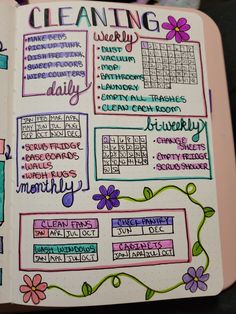 CLEANING
MAKE BEDS
PICK UP JUNK
DISHES/SINK
SWEEP FLOORS
WIPE COUNTERS
daily
Weekly
DUST
VACUUM
MOP
BATHROOMS
LAUNDRY
EMPTY ALL TRASHES
CLEAN EACH ROOM
JAN FEB MAR APR
MAY JUN JUL AUG
SEP OCT NOV DEC
SCRUB FRIDGE
BASEBOARDS
WALLS
WASH RUGS
monthly
bi-weekly
CHANGE
SHEETS
EMPTY FRIDGE
SCRUB SHOWER
CLEAN FANS
JAN APR JUL OCT
CHECK PANTRY
JUN DEC
WASH WINDOWS
JAN APR JUL OCT
CABINETS
JAN APR JUL OCT